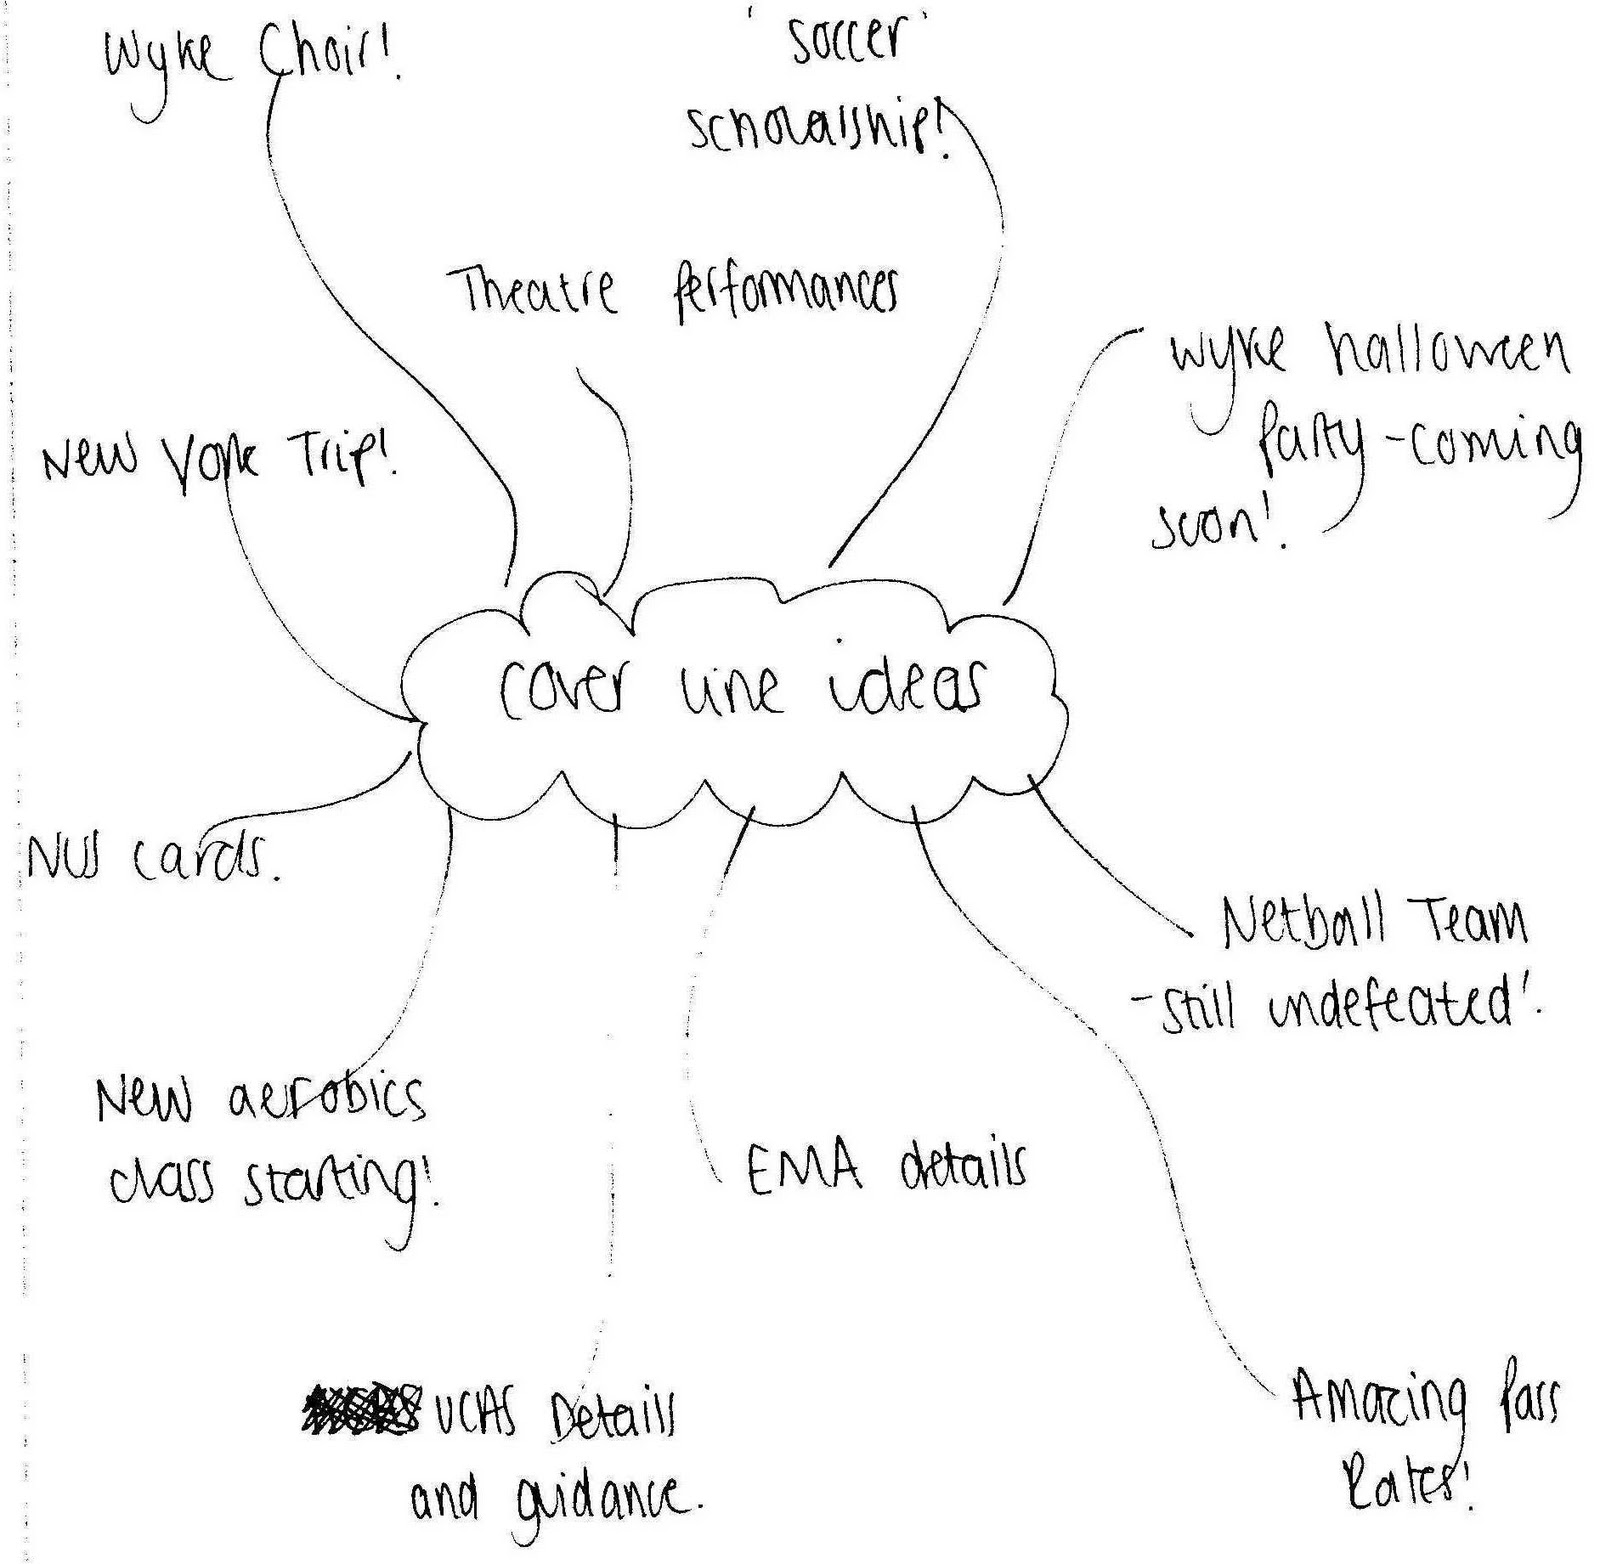 Wyke Choir!
'soccer'
scholarship!
Theatre Performances
Wyke halloween
Party - coming
soon!
New York Trip!
cover line ideas
NUS cards.
Netball Team
- still undefeated!
New aerobics
class starting!
EMA details
UCAS Details
and guidance.
Amazing Pass
Rates!